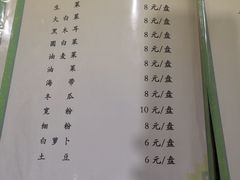 生菜 8元/盘
大白菜 8元/盘
黑木耳 8元/盘
圆白菜 8元/盘
油麦菜 8元/盘
油菜 8元/盘
海带 8元/盘
冬瓜 8元/盘
宽粉 10元/盘
细粉 8元/盘
白萝卜 6元/盘
土豆 6元/盘